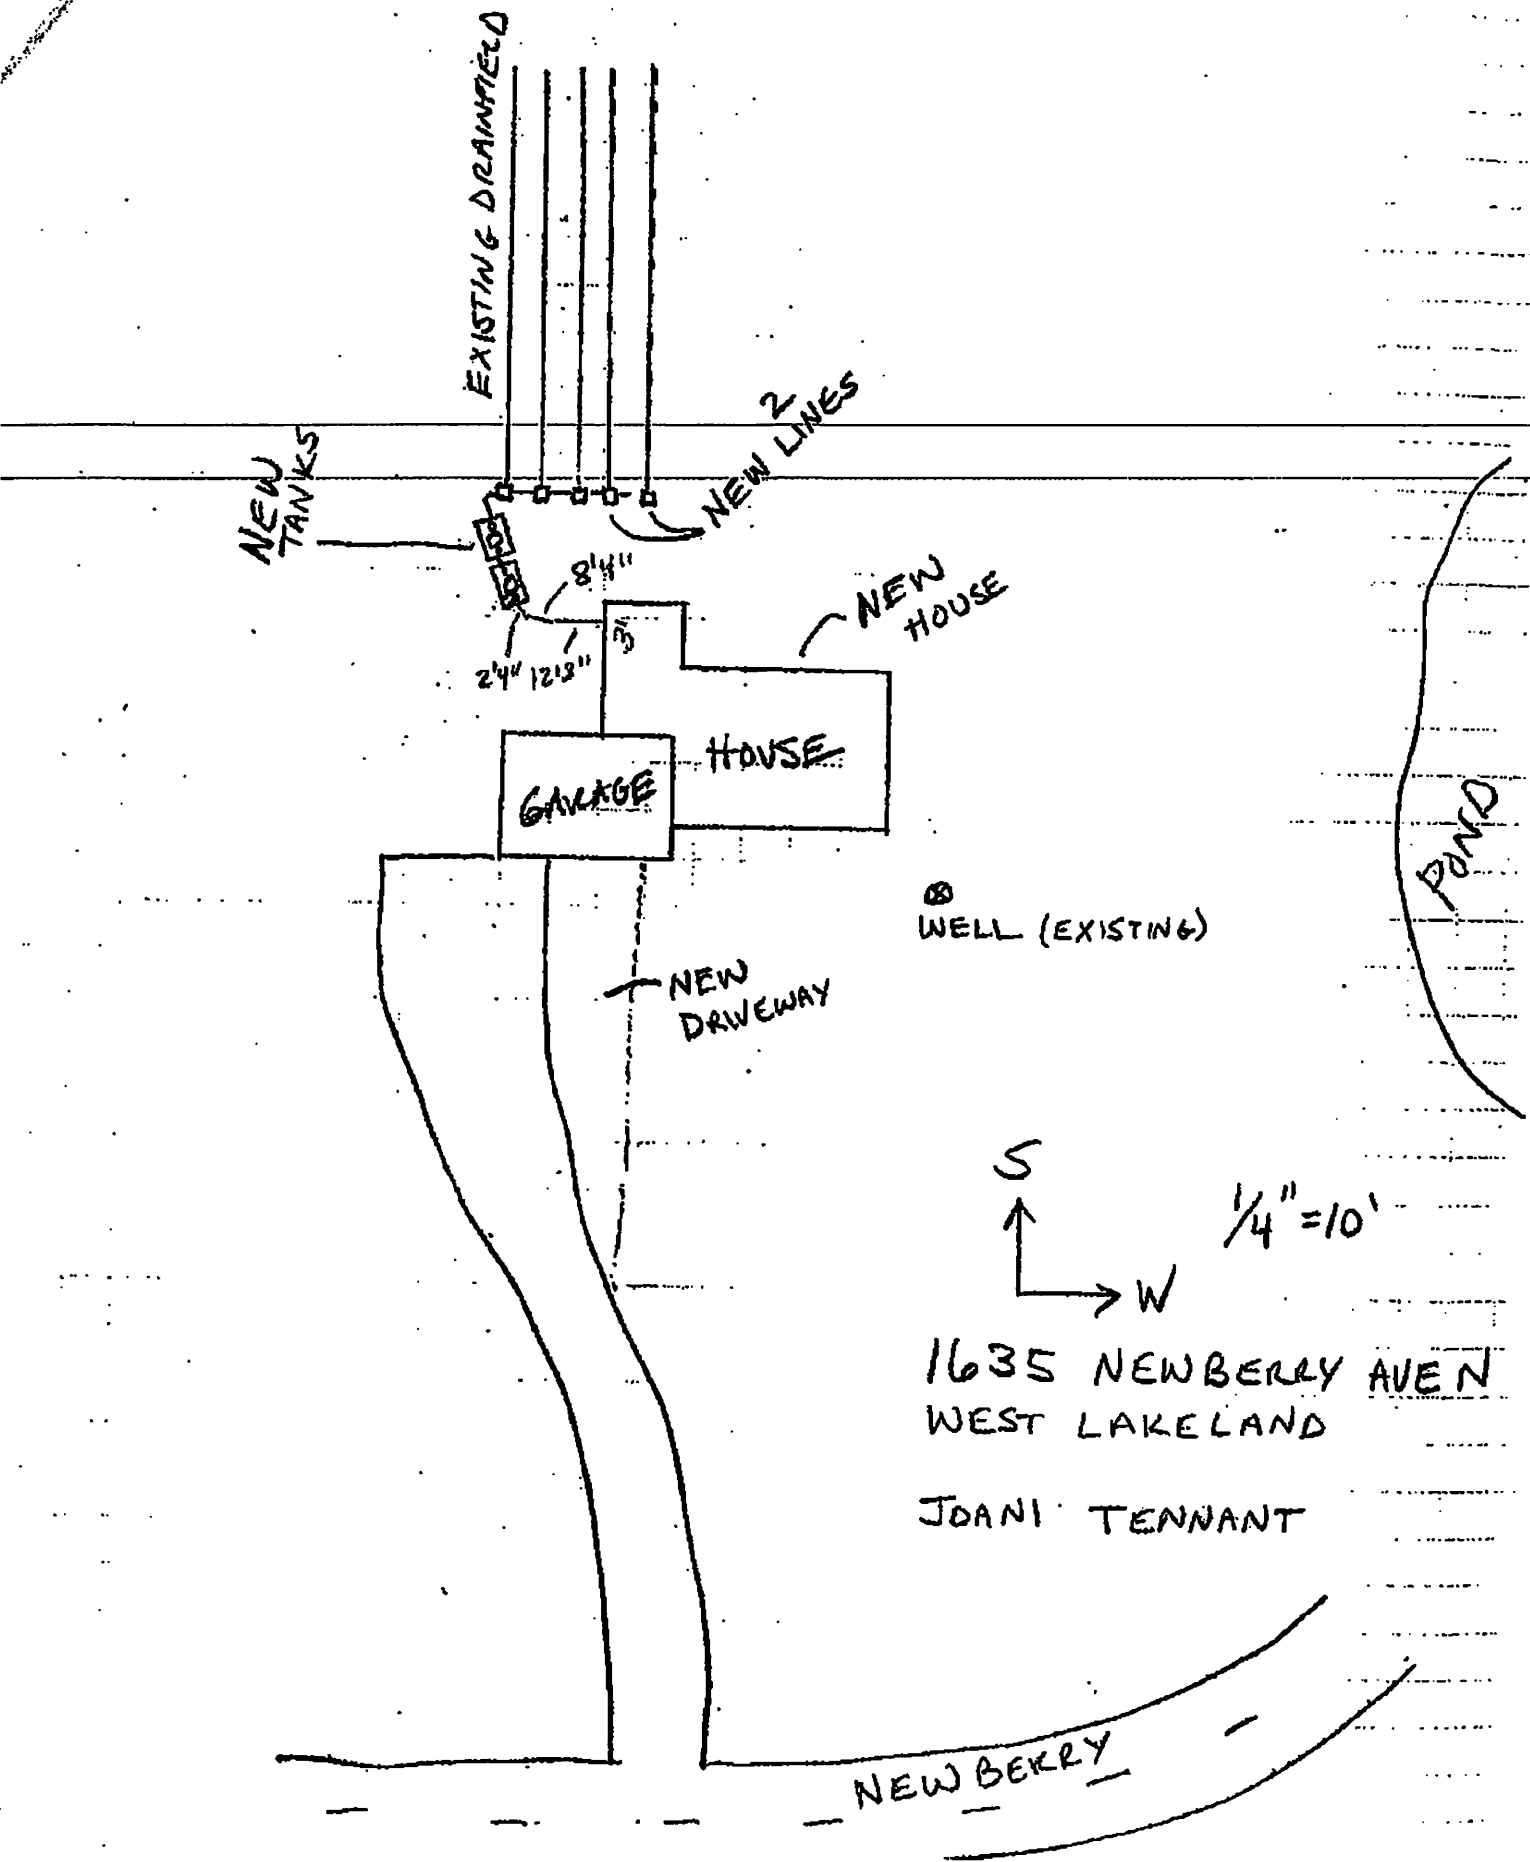 EXISTING DRAINFIELD
2
NEW LINES
NEW
TANKS
8'4"
NEW
HOUSE
3'
2'4" 12'3"
HOUSE
GARAGE
POND
WELL (EXISTING)
NEW
DRIVEWAY
S
1/4"=10'
W
1635 NEWBERRY AVE N
WEST LAKELAND
JOANI TENNANT
NEWBERRY